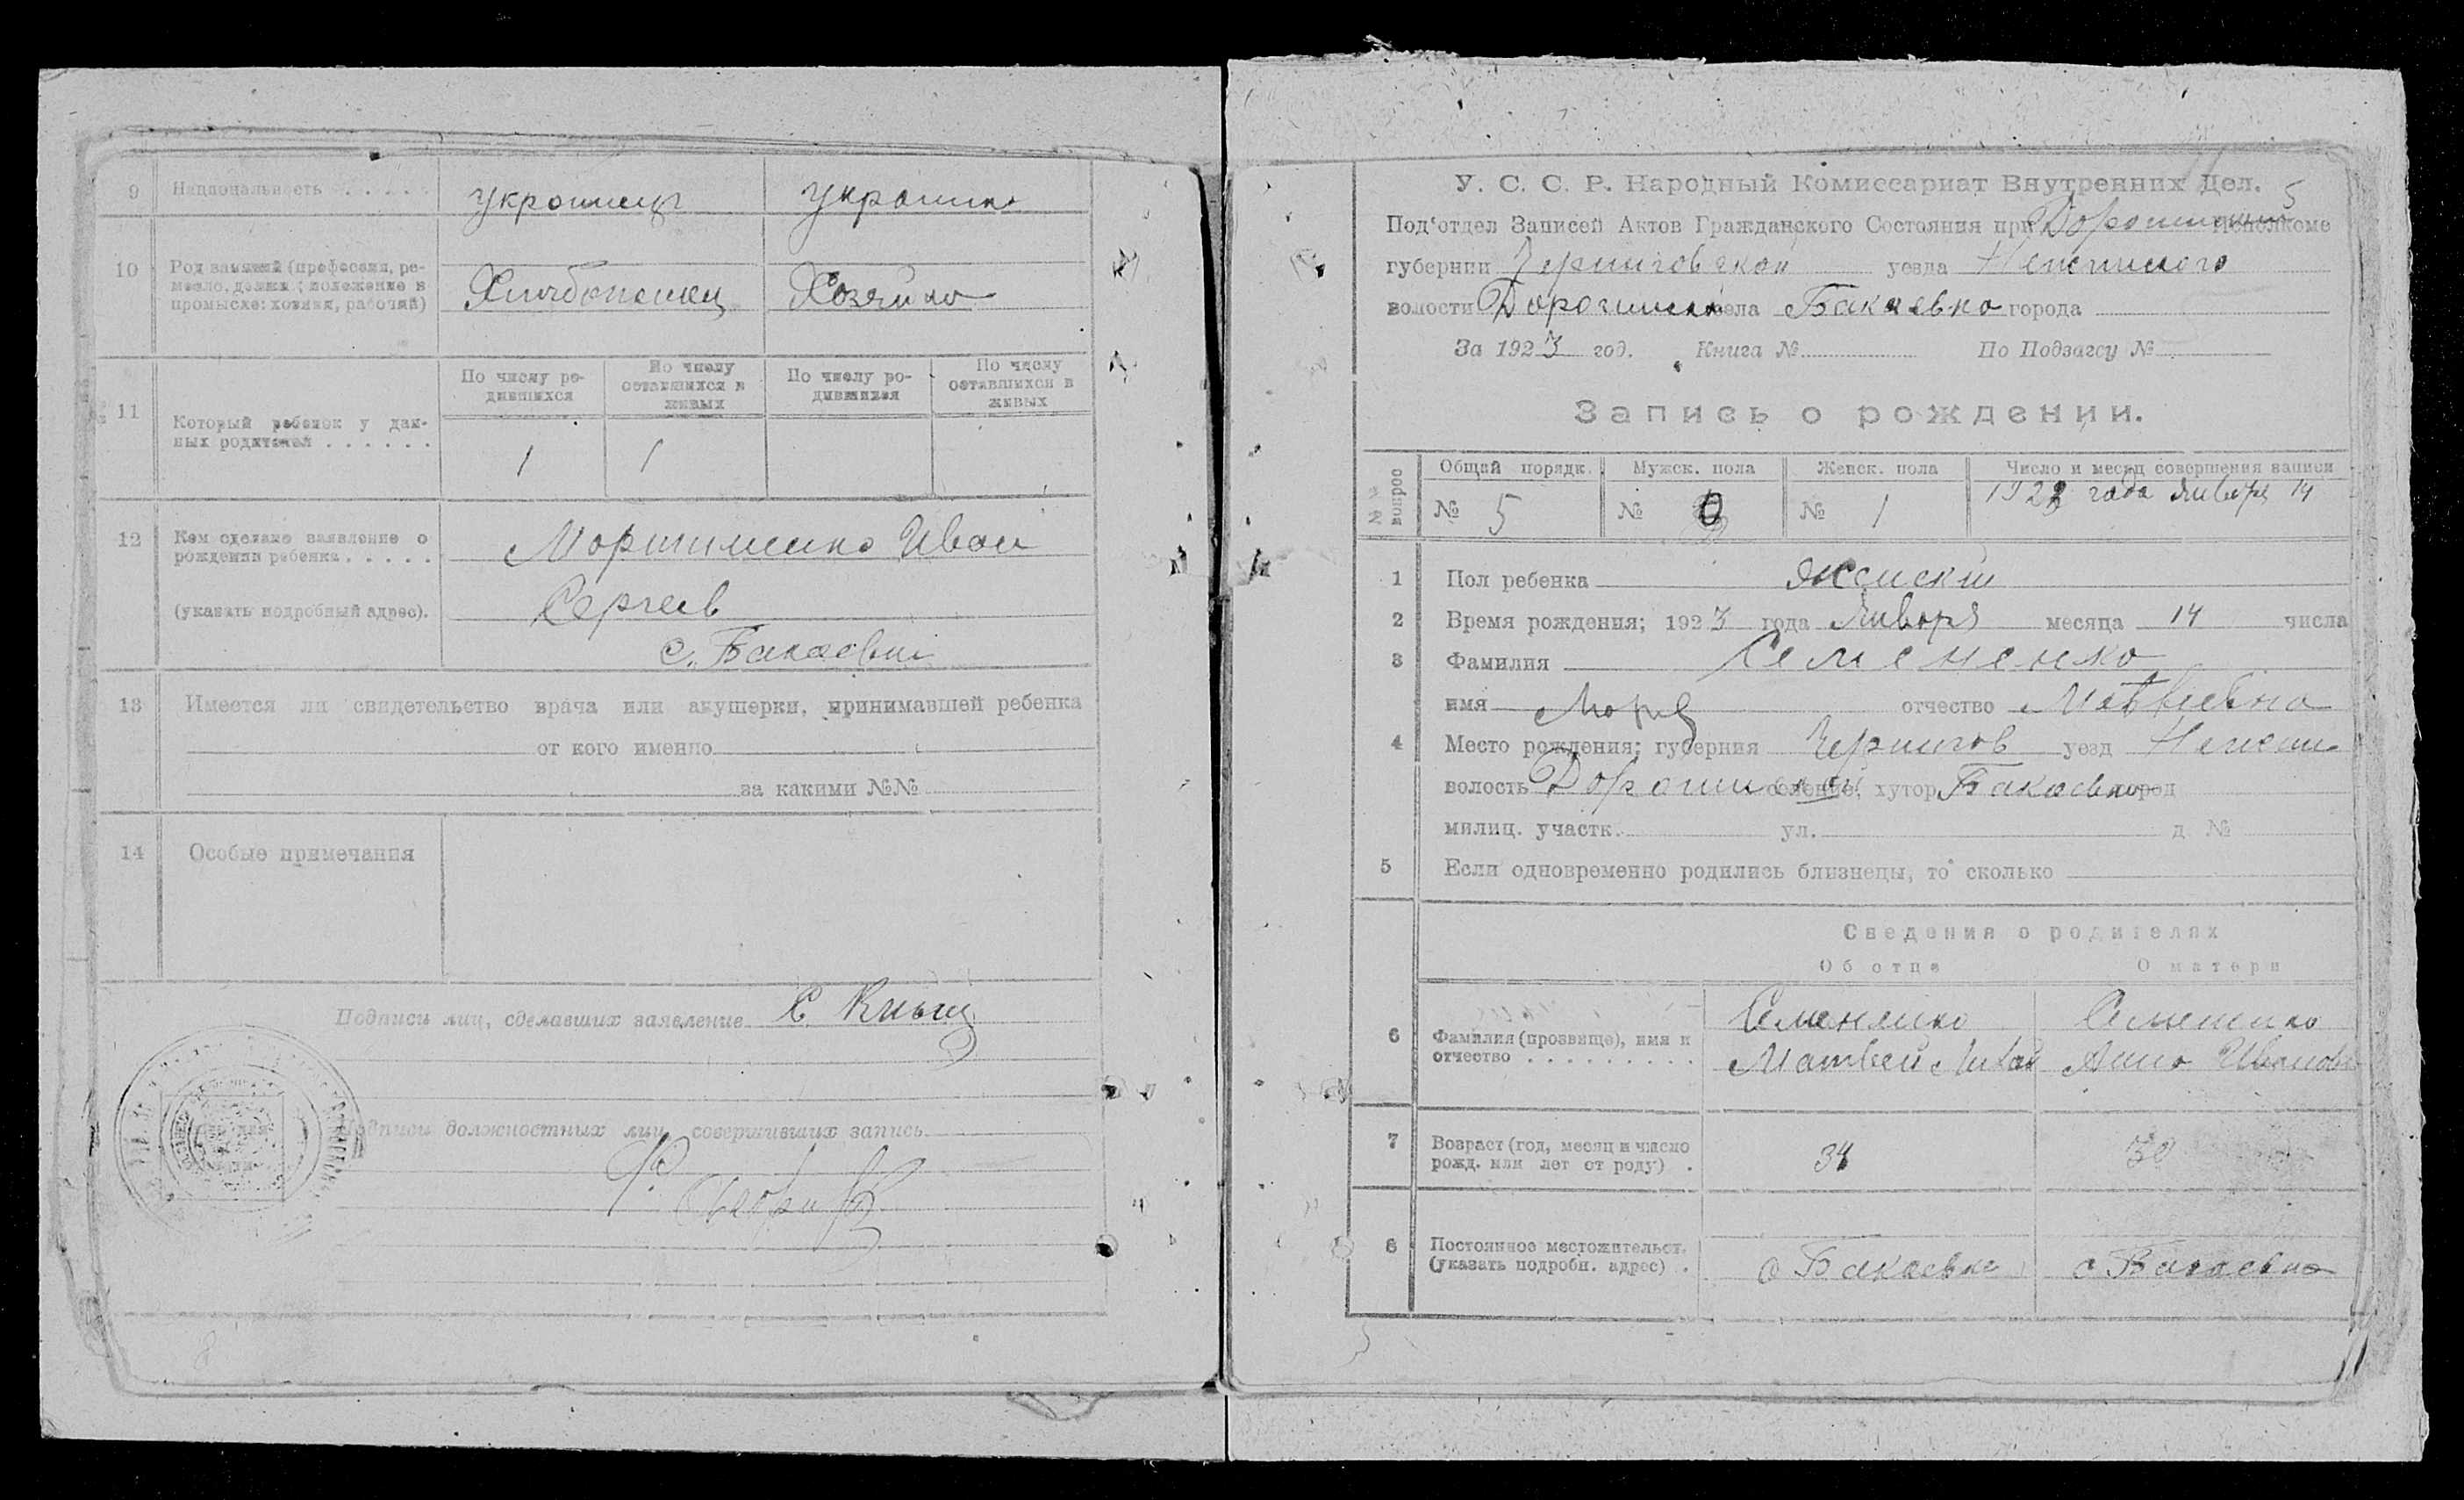 9 Национальность . . . . . украинец украинк
10 Род занятий (профессия, ре-
месло, должн.; положение в
промысле: хозяин, рабочий)
Хлибопашец Хозяйка
11 Который ребенок у дан-
ных родителей . . . . . .
По числу ро-
дившихся
По числу
оставшихся в
живых
По числу ро-
дившихся
По числу
оставшихся в
живых
1 1
12 Кем сделано заявление о
рождении ребенка . . . . .
(указать подробный адрес).
Мартименко Иван
Сергеев
с. Бакаевки
13 Имеется ли свидетельство врача или акушерки, принимавшей ребенка
от кого именно
за какими №№
14 Особые примечания
Подписи лиц, сделавших заявление
Подписи должностных лиц, совершивших запись
8
5
У. С. С. Р. Народный Комиссариат Внутренних Дел.
Под'отдел Записей Актов Гражданского Состояния при исполкоме
губернии Черниговской уезда
волости села Бакаевка города
За 1923 год. Книга № По Подзагсу №
Запись о рождении.
№№ вопрос
Общий порядк. Мужск. пола Женск. пола Число и месяц совершения записи
№ 5 № 0 № 1 1923 года Января 14
1 Пол ребенка Женский
2 Время рождения; 1923 года Января месяца 14 числа
3 Фамилия Семененко
имя Мария отчество Матвеевна
4 Место рождения; губерния Чернигов уезд
волость селение, хутор Бакаевка город
милиц. участк. ул. д №
5 Если одновременно родились близнецы, то сколько
Сведения о родителях
Об отце О матери
6 Фамилия (прозвище), имя и
отчество . . . . . . . . .
Семененко Семененко
Матвей Анна Иванов
7 Возраст (год, месяц и число
рожд. или лет от роду) .
34 30
8 Постоянное местожительст.
(указать подробн. адрес) .
с Бакаевка с Бакаевка